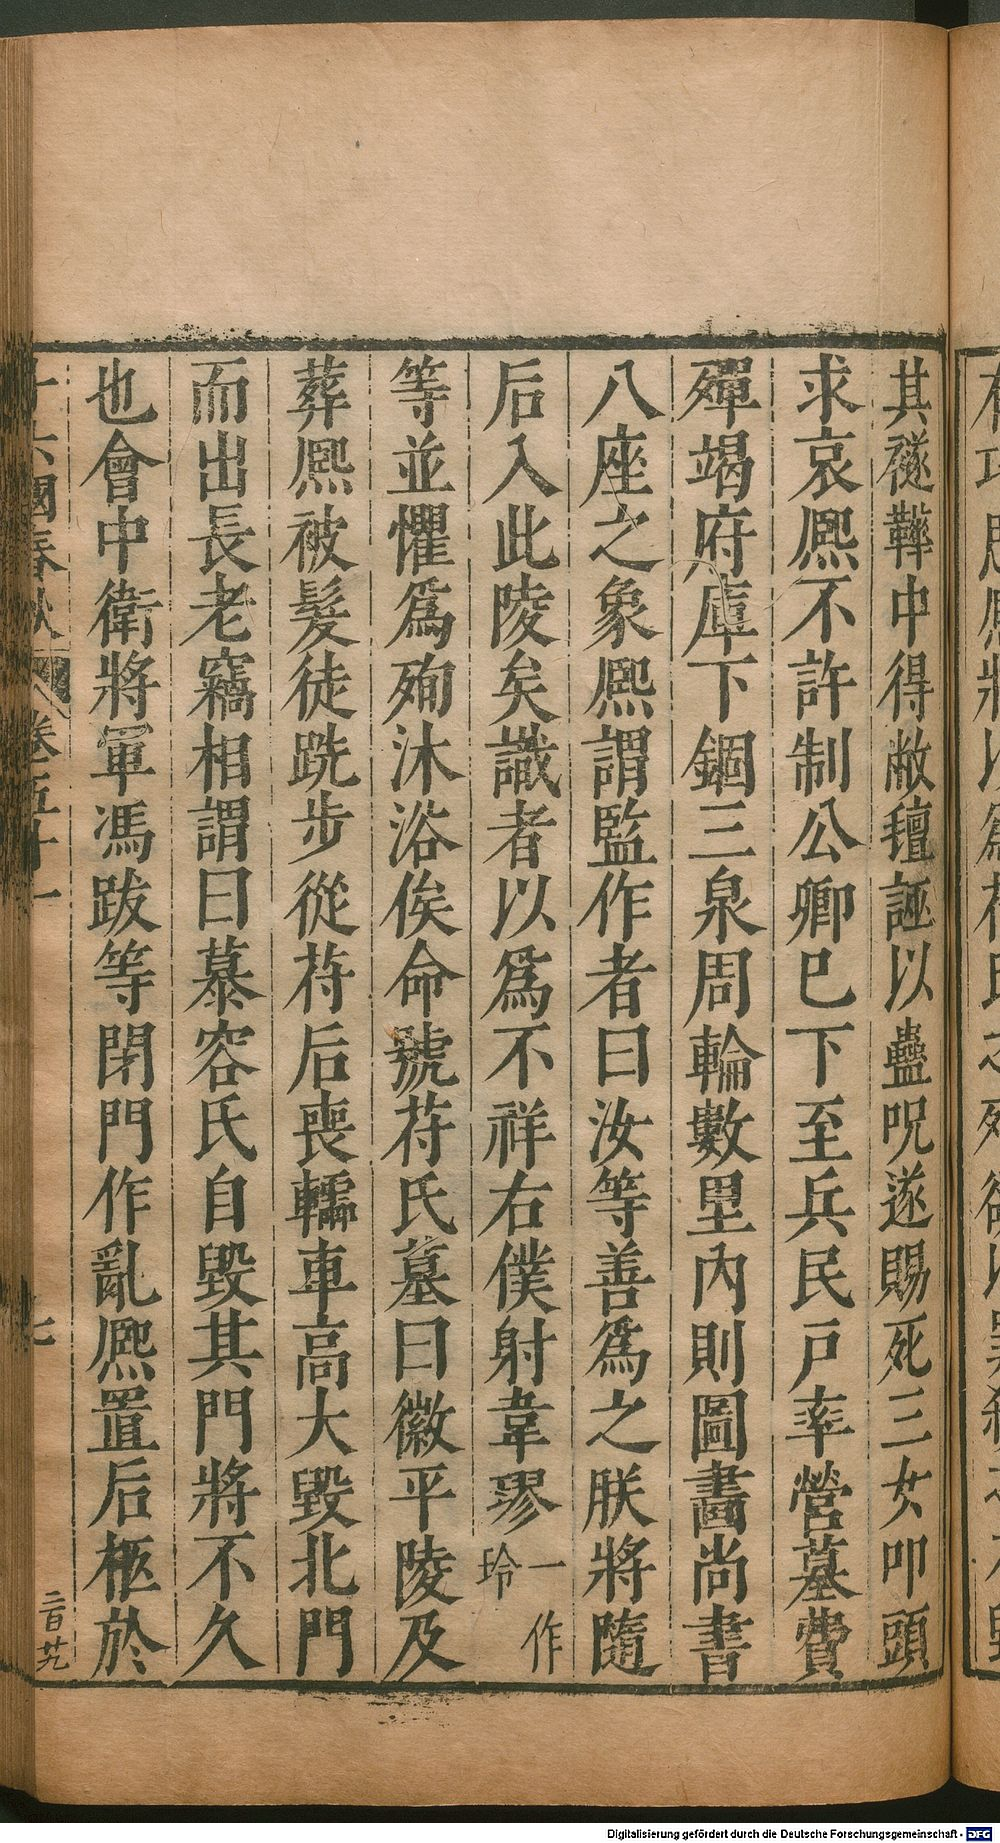 其襚鞾中得敝氊誣以蠱呪遂賜死三女叩頭
求哀熈不許制公卿已下至兵民戸率營墓費
殫竭府庫下錮三泉周輪數里內則圖畵尚書
八座之象熈謂監作者曰汝等善爲之朕將隨
后入此陵矣識者以爲不祥右僕射韋璆一作玲
等並懼爲殉沐浴俟命號苻氏墓曰徽平陵及
葬熈被髮徒跣步從苻后喪轜車高大毀北門
而出長老竊相謂曰慕容氏自毀其門將不久
也會中衛將軍馮跋等閉門作亂熈置后柩於
十六國春秋 卷五十一 七
二百廿九
Digitalisierung gefördert durch die Deutsche Forschungsgemeinschaft - DFG